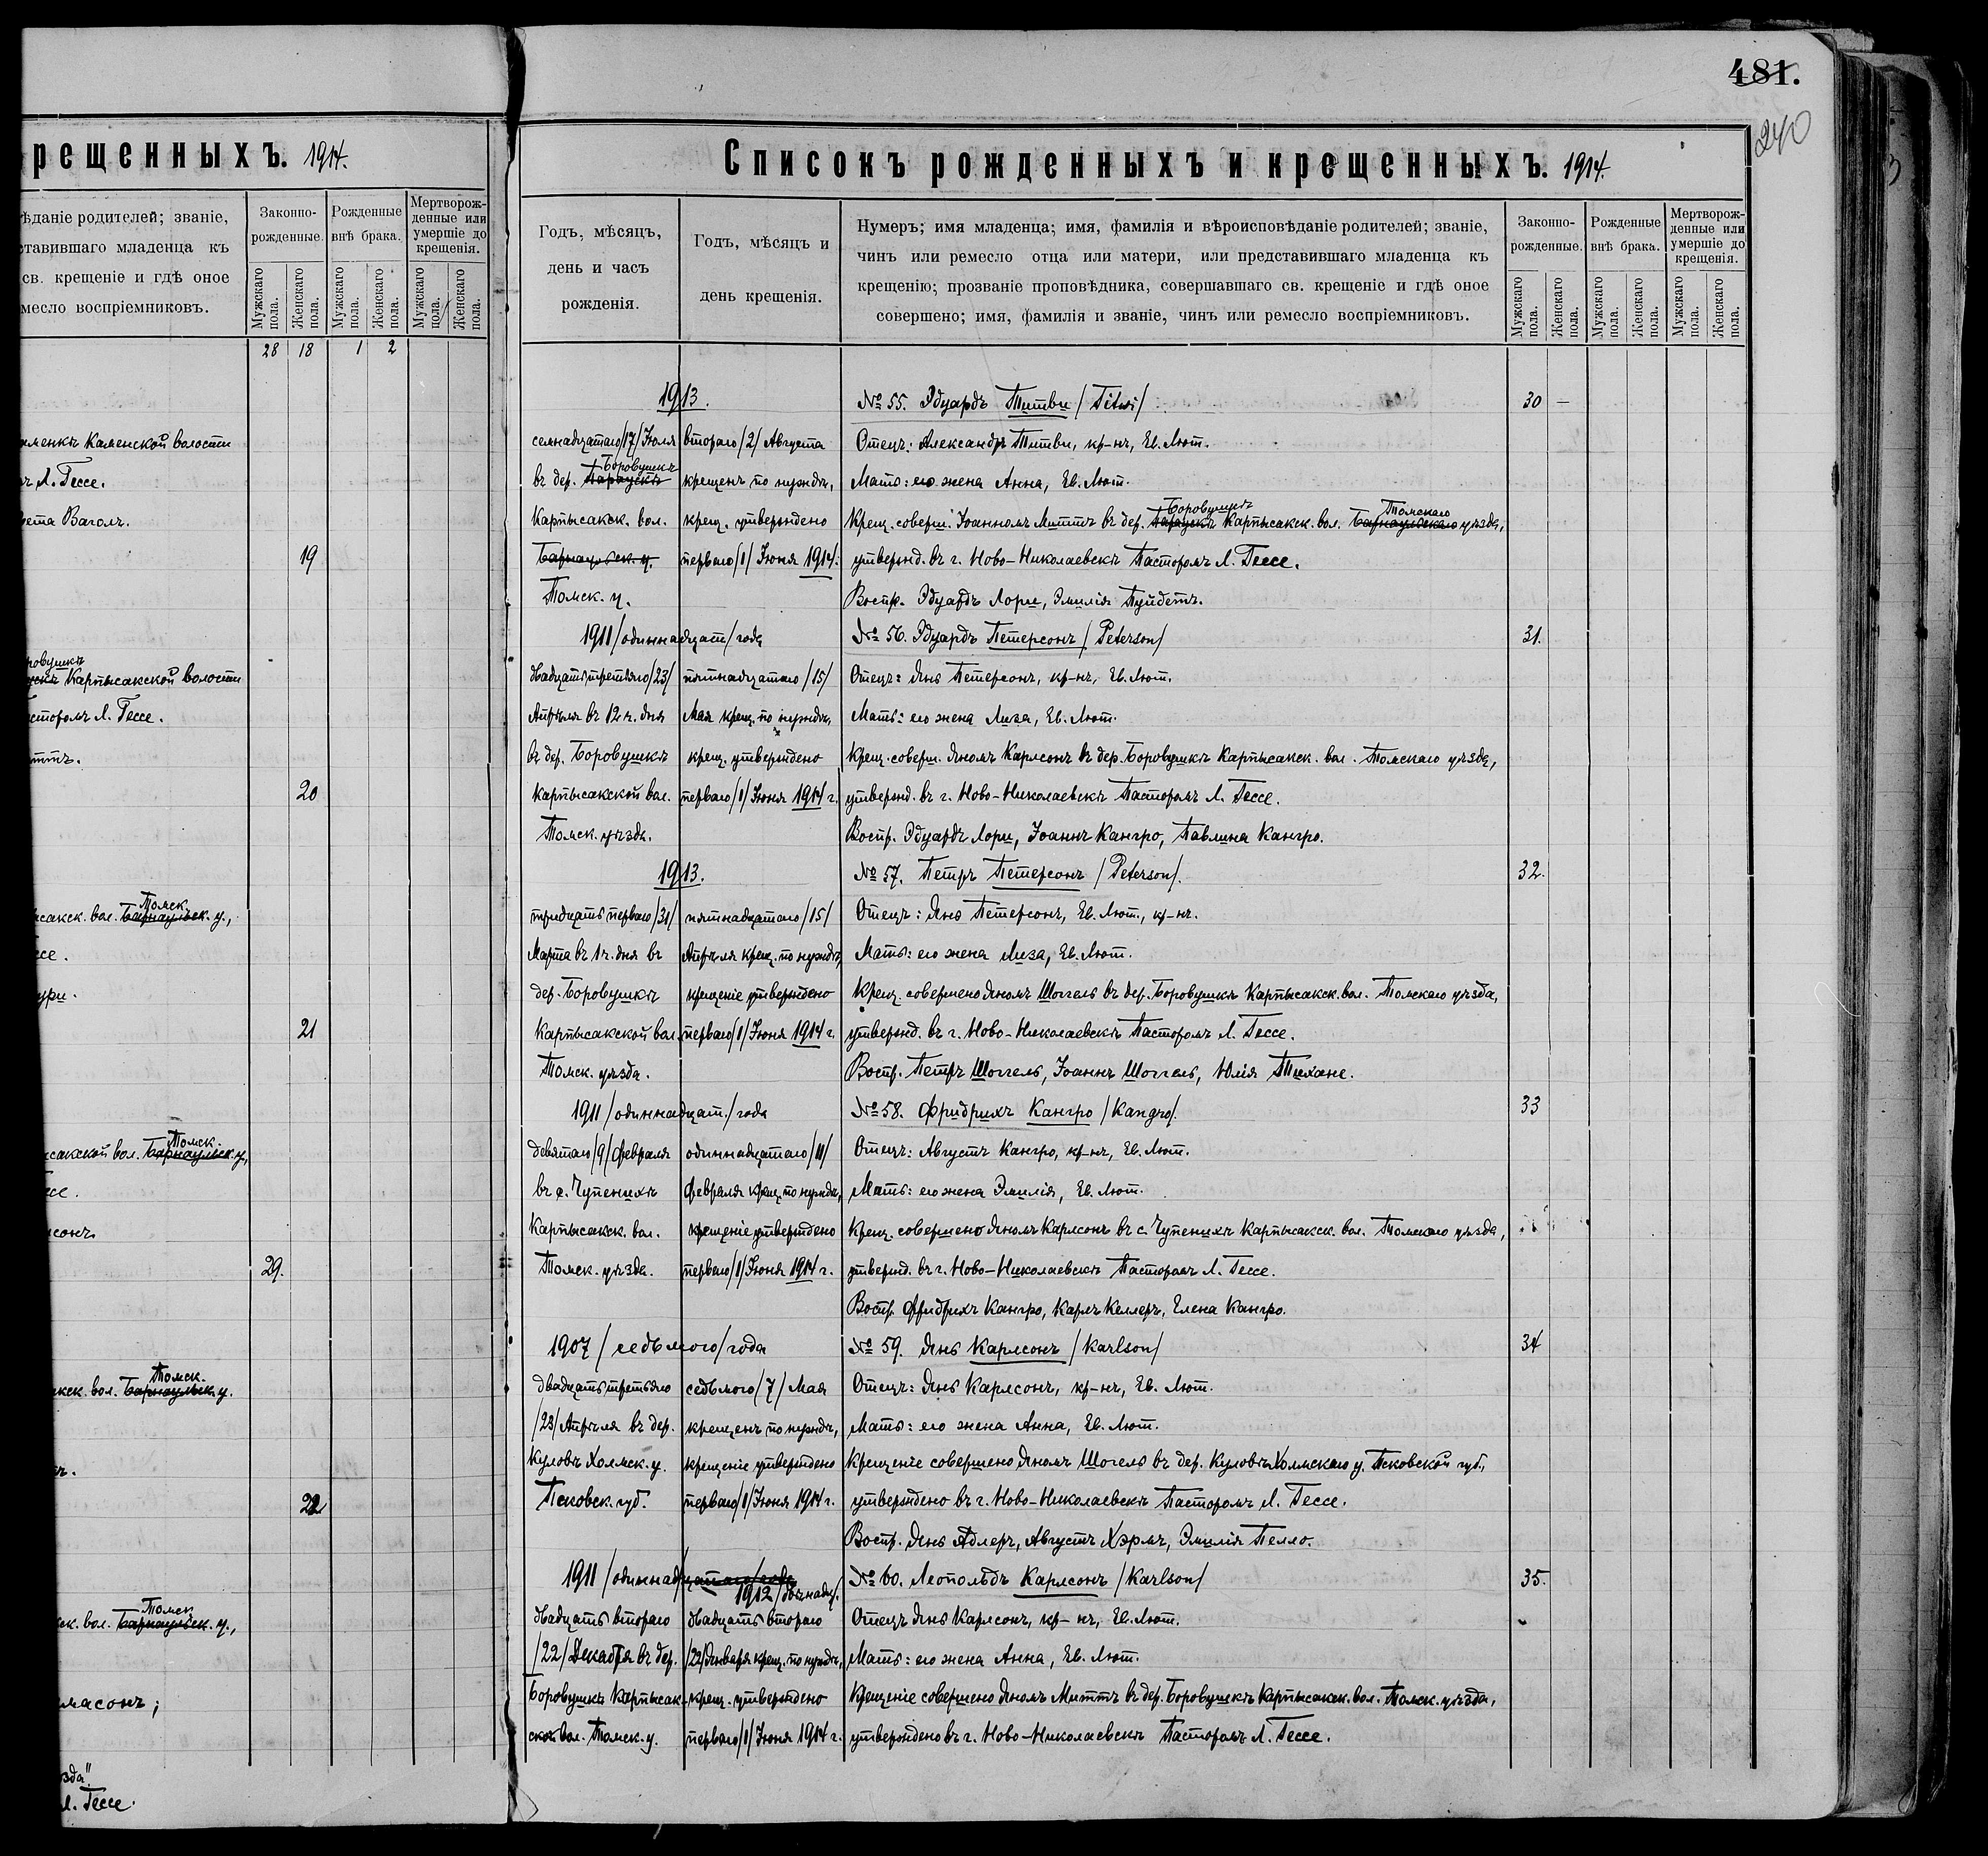 рещенныхъ. 1914.
ѣданіе родителей; званіе,
ставившаго младенца къ
св. крещеніе и гдѣ оное
месло воспріемниковъ.
Законно-
рожденные.
Рожденные
внѣ брака.
Мертворож-
денные или
умершіе до
крещенія.
Мужскаго пола.
Женскаго пола.
Мужскаго пола.
Женскаго пола.
Мужскаго пола.
Женскаго пола.
28 18 1 2
Каменской волости
ъ Л. Гессе.
19
Карпысакской волости
сторомъ Л. Гессе.
20
Томск.
сакск. вол. Барнаульск. у.,
ссе.
21
Томск.
сакской вол. Барнаульск. у.,
ссе.
29.
Томск.
кск. вол. Барнаульск. у.
22
Томск.
ск. вол. Барнаульск. у.,
масонъ;
Л. Гессе.
481.
240
Списокъ рожденныхъ и крещенныхъ. 1914.
Годъ, мѣсяцъ,
день и часъ
рожденія.
Годъ, мѣсяцъ и
день крещенія.
Нумеръ; имя младенца; имя, фамилія и вѣроисповѣданіе родителей; званіе,
чинъ или ремесло отца или матери, или представившаго младенца къ
крещенію; прозваніе проповѣдника, совершавшаго св. крещеніе и гдѣ оное
совершено; имя, фамилія и званіе, чинъ или ремесло воспріемниковъ.
Законно-
рожденные.
Рожденные
внѣ брака.
Мертворож-
денные или
умершіе до
крещенія.
Мужскаго пола.
Женскаго пола.
Мужскаго пола.
Женскаго пола.
Мужскаго пола.
Женскаго пола.
1913. № 55. Эдуардъ Титви /Titwi/ 30 —
семнадцатаго /17/ Іюля втораго /2/ Августа Отецъ: Александръ Титви, кр-нъ, Ев. Лют.
Боровушкѣ
въ дер. крещенъ по нуждѣ, Мать: его жена Анна, Ев. Лют.
Боровушкѣ Томскаго
Карпысакск. вол. крещ. утверждено Крещ. соверш. Іоанномъ Миттъ въ дер. Карпысакск. вол. Барнаульскаго уѣзда,
Барнаульск. у. перваго /1/ Іюня 1914. утвержд. въ г. Ново-Николаевскѣ Пасторомъ Л. Гессе.
Томск. у. Воспр. Эдуардъ Лори, Эмилія Пуйдетъ.
1911 /одиннадцат/ года № 56. Эдуардъ Петерсонъ /Peterson/ 31.
двадцать третьяго /23/ пятнадцатаго /15/ Отецъ: Янъ Петерсонъ, кр-нъ, Ев. Лют.
Апрѣля въ 12 ч. дня Мая крещ. по нуждѣ, Мать: его жена Лиза, Ев. Лют.
въ дер. Боровушкѣ крещ. утверждено Крещ. соверш. Яномъ Карлсонъ въ дер. Боровушкѣ Карпысакск. вол. Томскаго уѣзда,
Карпысакской вол. перваго /1/ Іюня 1914 г. утвержд. въ г. Ново-Николаевскѣ Пасторомъ Л. Гессе.
Томск. уѣзда. Воспр. Эдуардъ Лори, Іоаннъ Кангро, Павлина Кангро.
1913. № 57. Петръ Петерсонъ /Peterson/. 32.
тридцать перваго /31/ пятнадцатаго /15/ Отецъ: Янъ Петерсонъ, Ев. Лют., кр-нъ.
Марта въ 1 ч. дня въ Апрѣля крещ. по нуждѣ, Мать: его жена Лиза, Ев. Лют.
дер. Боровушкѣ крещеніе утверждено Крещ. совершено Яномъ Шоггель въ дер. Боровушкѣ Карпысакск. вол. Томскаго уѣзда,
Карпысакской вол. перваго /1/ Іюня 1914 г. утвержд. въ г. Ново-Николаевскѣ Пасторомъ Л. Гессе.
Томск. уѣзда. Воспр. Петръ Шоггель, Іоаннъ Шоггель, Юлія Тихане.
1911 /одиннадцат./ года № 58. Фридрихъ Кангро /Kangro/. 33
девятаго /9/ Февраля одиннадцатаго /11/ Отецъ: Августъ Кангро, кр-нъ, Ев. Лют.
въ с. Чупенихѣ Февраля крещ. по нуждѣ, Мать: его жена Эмилія, Ев. Лют.
Карпысакск. вол. крещеніе утверждено Крещ. совершено Яномъ Карлсонъ въ с. Чупенихѣ Карпысакск. вол. Томскаго уѣзда,
Томск. уѣзда. перваго /1/ Іюня 1914 г. утвержд. въ г. Ново-Николаевскѣ Пасторомъ Л. Гессе.
Воспр. Фридрихъ Кангро, Карлъ Келлеръ, Елена Кангро.
1907 /седьмого/ года № 59. Янъ Карлсонъ /Karlson/ 34
двадцать третьяго седьмого /7/ Мая Отецъ: Янъ Карлсонъ, кр-нъ, Ев. Лют.
/23/ Апрѣля въ дер. крещенъ по нуждѣ, Мать: его жена Анна, Ев. Лют.
Куловѣ Холмск. у. крещеніе утверждено Крещеніе совершено Яномъ Шогель въ дер. Куловѣ Холмскаго у. Псковской губ.,
Псковск. губ. перваго /1/ Іюня 1914 г. утверждено въ г. Ново-Николаевскѣ Пасторомъ Л. Гессе.
Воспр. Янъ Адлеръ, Августъ Хэрмъ, Эмилія Пелло.
1911 /одиннадцатаго/ года № 60. Леопольдъ Карлсонъ /Karlson/ 35.
1912 /двѣнадц/.
двадцать втораго двадцать втораго Отецъ Янъ Карлсонъ, кр-нъ, Ев. Лют.
/22/ Декабря въ дер. /22/ Января крещ. по нуждѣ, Мать: его жена Анна, Ев. Лют.
Боровушкѣ Карпысак- крещ. утверждено Крещеніе совершено Яномъ Миттъ въ дер. Боровушкѣ Карпысакск. вол. Томск. уѣзда,
ской вол. Томск. у. перваго /1/ Іюня 1914 г. утверждено въ г. Ново-Николаевскѣ Пасторомъ Л. Гессе.